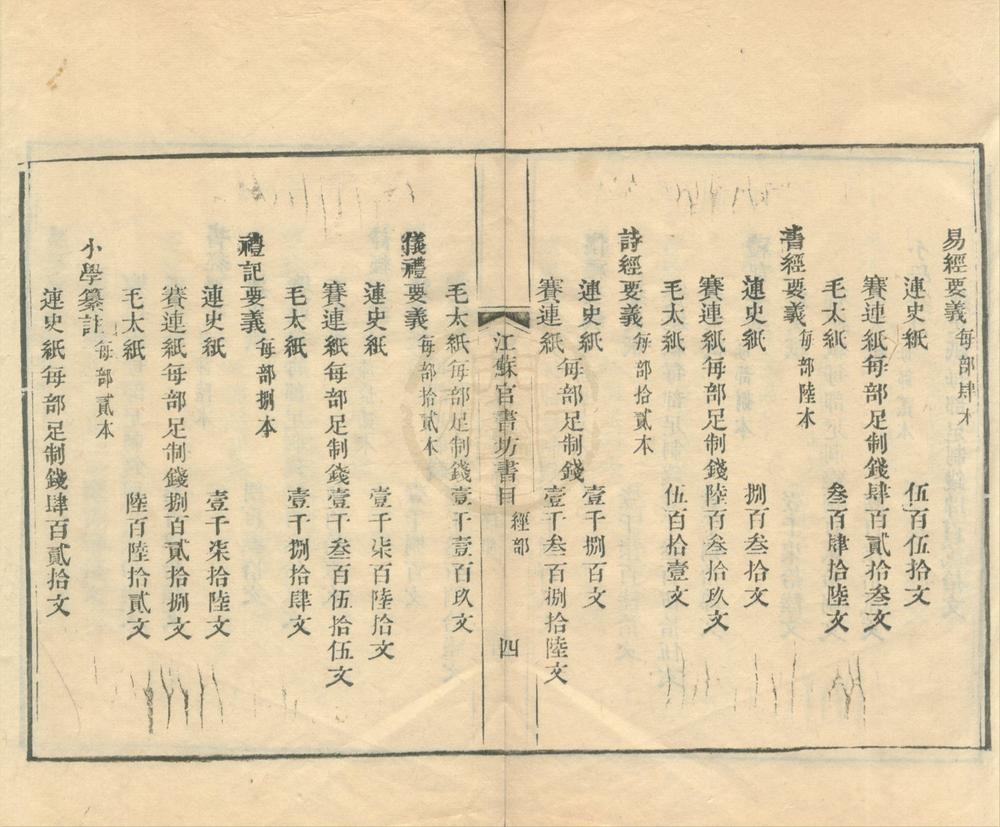 易經要義每部肆本
連史紙 伍百伍拾文
賽連紙每部足制錢肆百貳拾叁文
毛太紙 叁百肆拾陸文
書經要義每部陸本
連史紙 捌百叁拾文
賽連紙每部足制錢陸百叁拾玖文
毛太紙 伍百拾壹文
詩經要義每部拾貳本
連史紙 壹千捌百文
賽連紙每部足制錢壹千叁百捌拾陸文
江蘇官書坊書目 經部 四
毛太紙每部足制錢壹千壹百玖文
儀禮要義每部拾貳本
連史紙 壹千柒百陸拾文
賽連紙每部足制錢壹千叁百伍拾伍文
毛太紙 壹千捌拾肆文
禮記要義每部捌本
連史紙 壹千柒拾陸文
賽連紙每部足制錢捌百貳拾捌文
毛太紙 陸百陸拾貳文
小學纂註每部貳本
連史紙每部足制錢肆百貳拾文